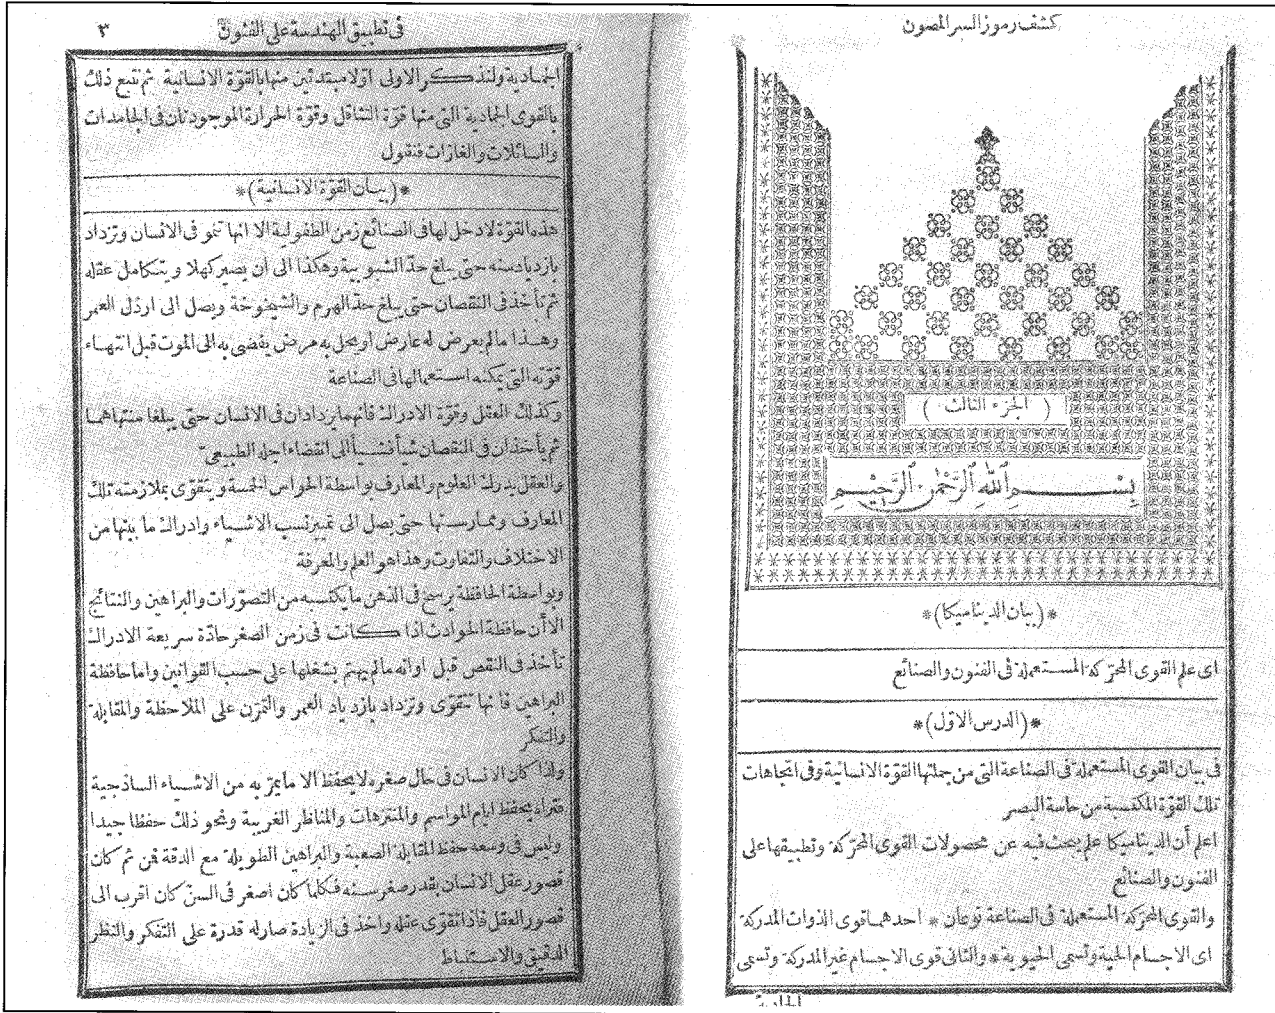 كشف رموز السر المصون
(الجزء الثالث)
بِسْمِ اللهِ الرَّحْمٰنِ الرَّحِيْمِ
*(بيان الديناميكا)*
اى علم القوى المحرّكة المستعملة فى الفنون والصنائع
*(الدرس الاوّل)*
فى بيان القوى المستعملة فى الصناعة التى من جملتها القوّة الانسانية وفى اتجاهات
تلك القوّة المكتسبة من حاسة البصر
اعلم أن الديناميكا علم يبحث فيه عن محصولات القوى المحرّكة وتطبيقها على
الفنون والصنائع
والقوى المحرّكة المستعملة فى الصناعة نوعان * احدهما قوى الذوات المدركة
اى الاجسام الحية وتسمى الحيوية * والثانى قوى الاجسام غير المدركة وتسمى
الجمادية
فى تطبيق الهندسة على الفنون ٣
الجمادية ولنذكر الاولى اوّلا مبتدئين منها بالقوّة الانسانية ثم نتبع ذلك
بالقوى الجمادية التى منها قوّة التثاقل وقوّة الحرارة الموجودتان فى الجامدات
والسائلات والغازات فنقول
*(بيان القوّة الانسانية)*
هذه القوّة لا دخل لها فى الصنائع زمن الطفولية الا انها تنمو فى الانسان وتزداد
بازدياد سنه حتى يبلغ حدّ الشبوبية وهكذا الى أن يصير كهلا ويتكامل عقله
ثم تأخذ فى النقصان حتى يبلغ حدّ الهرم والشيخوخة ويصل الى ارذل العمر
وهذا ما لم يعرض له عارض او يحل به مرض يفضى به الى الموت قبل انتهاء
قوّته التى يمكنه استعمالها فى الصناعة
وكذلك العقل وقوّة الادراك فانهما يزدادان فى الانسان حتى يبلغا منتهاهما
ثم يأخذان فى النقصان شيأ فشيأ الى انقضاء اجله الطبيعىّ
والعقل يدرك العلوم والمعارف بواسطة الحواس الخمسة ويتقوى بملازمته تلك
المعارف وممارستها حتى يصل الى تمييز نسب الاشياء وادراك ما بينها من
الاختلاف والتفاوت وهذا هو العلم والمعرفة
وبواسطة الحافظة يرسخ فى الذهن ما يكتسبه من التصوّرات والبراهين والنتائج
الا أن حافظة الحوادث اذا كانت فى زمن الصغر حادّة سريعة الادراك
تأخذ فى النقص قبل اوانه ما لم يهتم بشغلها على حسب القوانين واما حافظة
البراهين فانها تتقوّى وتزداد بازدياد العمر والتمرّن على الملاحظة والمقابلة
والتفكر
واذا كان الانسان فى حال صغره لا يحفظ الا ما يمرّ به من الاشياء الساذجية
فتراه يحفظ ايام المواسم والمنتزهات والمناظر الغريبة ونحو ذلك حفظا جيدا
وليس فى وسعه حفظ المقابلة الصعبة والبراهين الطويلة مع الدقة فمن ثم كان
قصور عقل الانسان بقدر صغر سنه فكلما كان اصغر فى السنّ كان اقرب الى
قصور العقل فاذا تقوّى عقله واخذ فى الزيادة صار له قدرة على التفكر والنظر
الدقيق والاستنباط